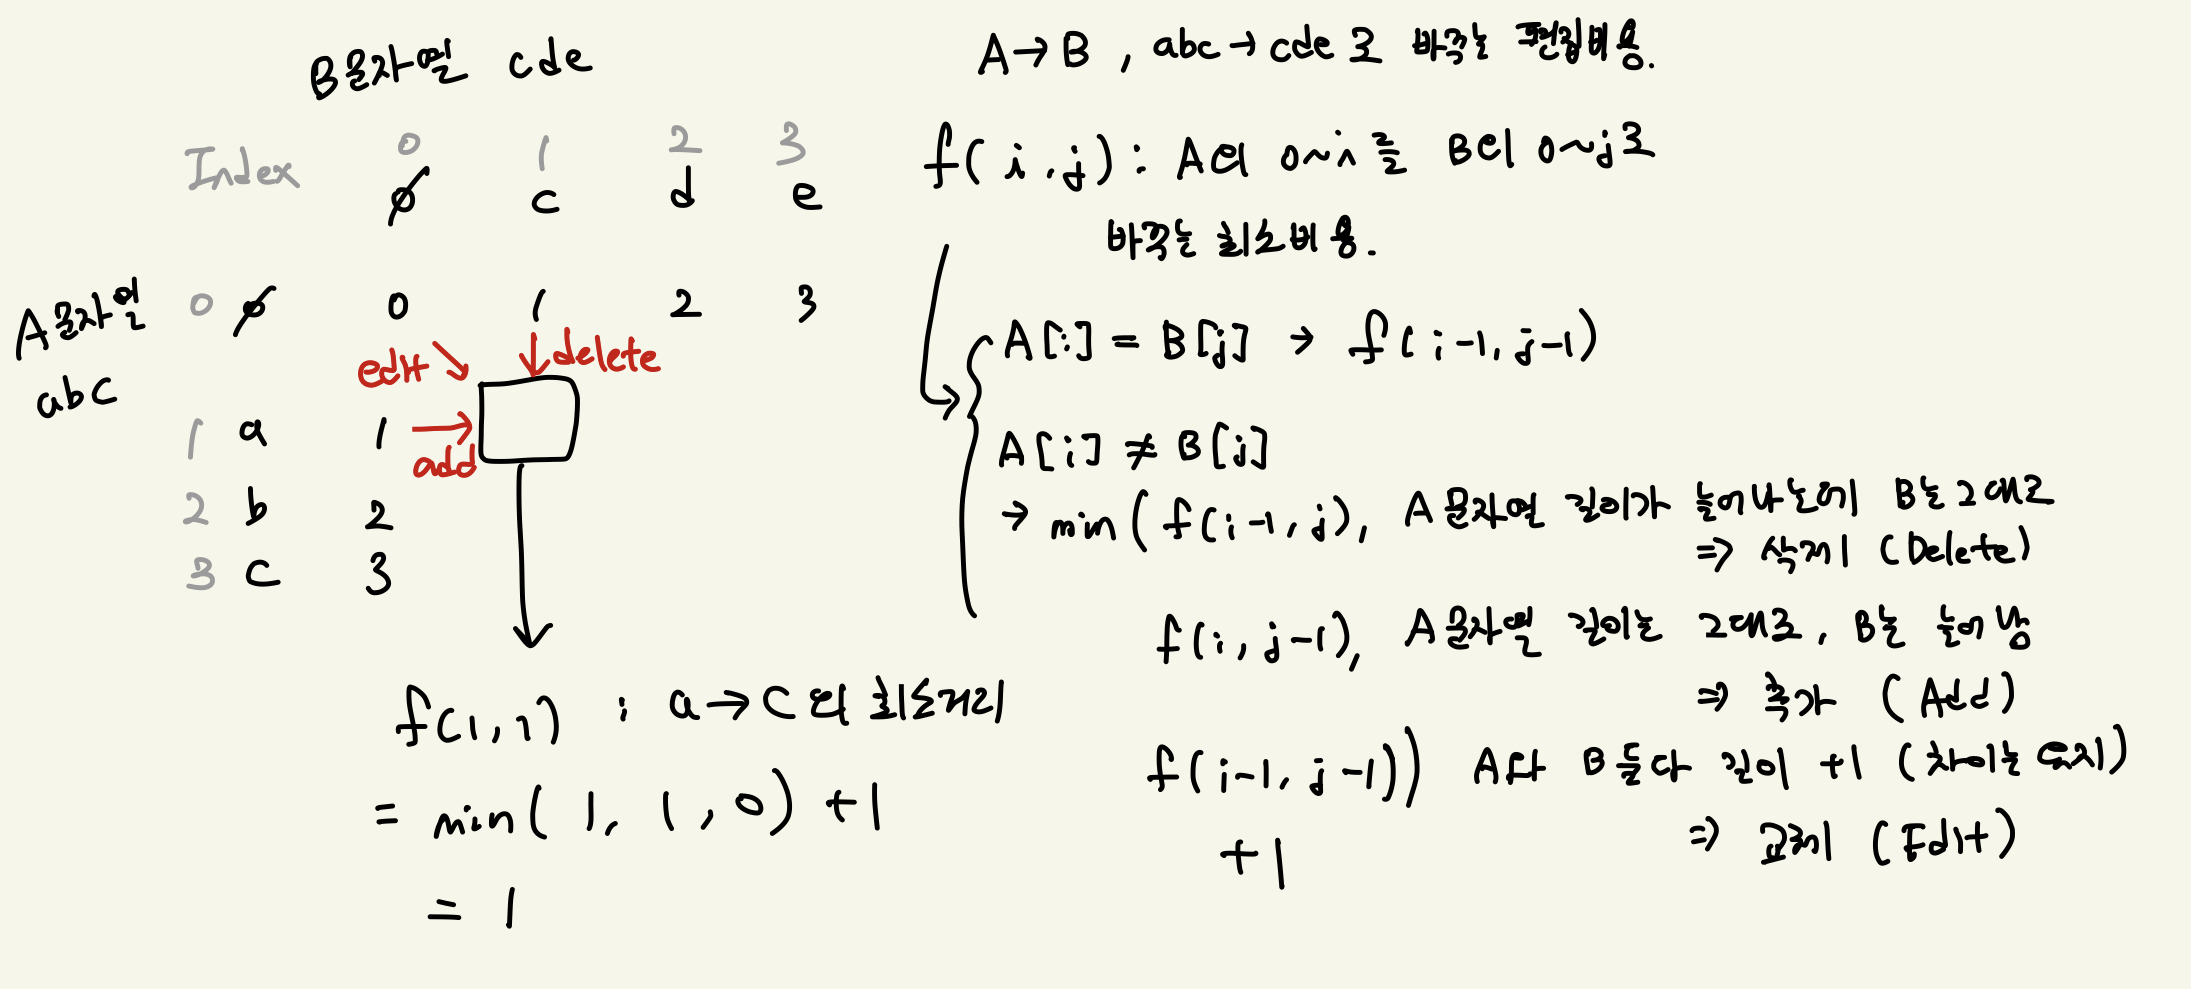 B문자열 cde
Index 0 1 2 3
∅ c d e
A문자열
abc
0 ∅ 0 1 2 3
edit delete
1 a 1
add
2 b 2
3 c 3
f(1,1) : a→c의 최소거리
= min( 1, 1, 0) +1
= 1
A→B , abc→cde로 바꾸는 편집비용.
f(i,j) : A의 0~i를 B의 0~j로
바꾸는 최소비용.
A[i] = B[j] → f(i-1, j-1)
A[i] ≠ B[j]
→ min( f(i-1, j), A문자열 길이가 늘어나는데 B는 그대로
⇒ 삭제 (Delete)
f(i, j-1), A문자열 길이는 그대로, B는 늘어남
⇒ 추가 (Add)
f(i-1, j-1)) A나 B 둘다 길이 +1 (차이는 유지)
+1
⇒ 교체 (Edit)